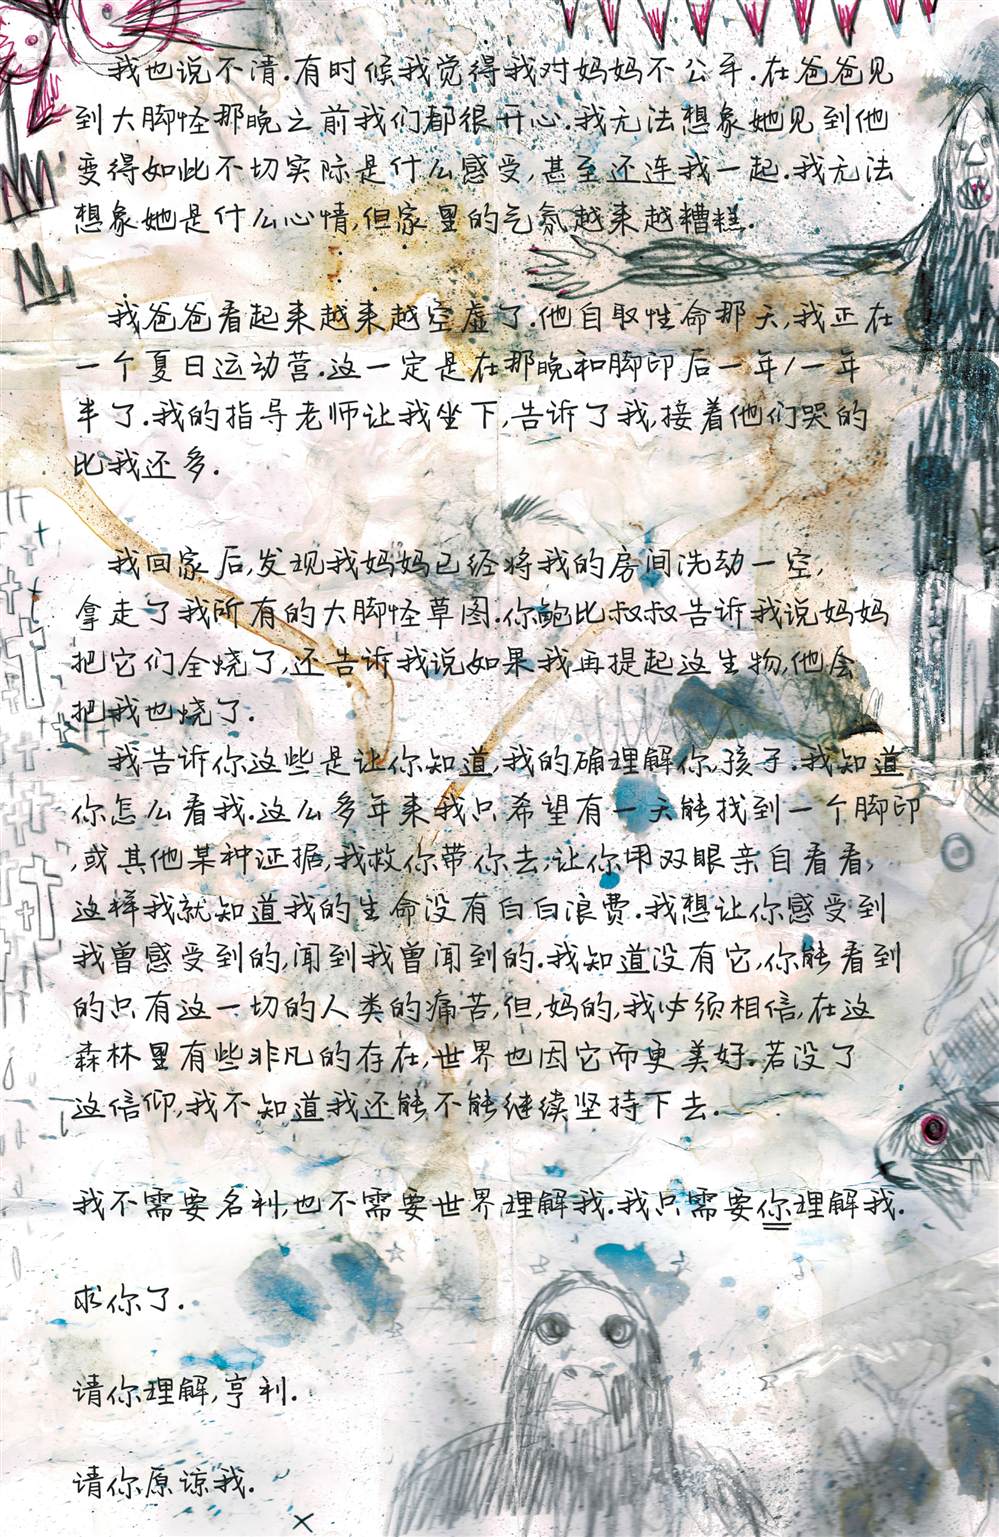 我也说不清.有时候我觉得我对妈妈不公平.在爸爸见
到大脚怪那晚之前我们都很开心.我无法想象她见到他
变得如此不切实际是什么感受,甚至还连我一起.我无法
想象她是什么心情,但家里的气氛越来越糟糕.
我爸爸看起来越来越空虚了.他自取性命那天,我正在
一个夏日运动营.这一定是在那晚和脚印后一年/一年
半了.我的指导老师让我坐下,告诉了我,接着他们哭的
比我还多.
我回家后,发现我妈妈已经将我的房间洗劫一空,
拿走了我所有的大脚怪草图.你鲍比叔叔告诉我说妈妈
把它们全烧了,还告诉我说如果我再提起这生物,他会
把我也烧了.
我告诉你这些是让你知道,我的确理解你,孩子.我知道
你怎么看我.这么多年来我只希望有一天能找到一个脚印
,或其他某种证据,我救你带你去,让你用双眼亲自看看,
这样我就知道我的生命没有白白浪费.我想让你感受到
我曾感受到的,闻到我曾闻到的.我知道没有它,你能看到
的只有这一切的人类的痛苦,但,妈的,我必须相信,在这
森林里有些非凡的存在,世界也因它而更美好.若没了
这信仰,我不知道我还能不能继续坚持下去.
我不需要名利,也不需要世界理解我.我只需要你理解我.
求你了.
请你理解,亨利.
请你原谅我.
x